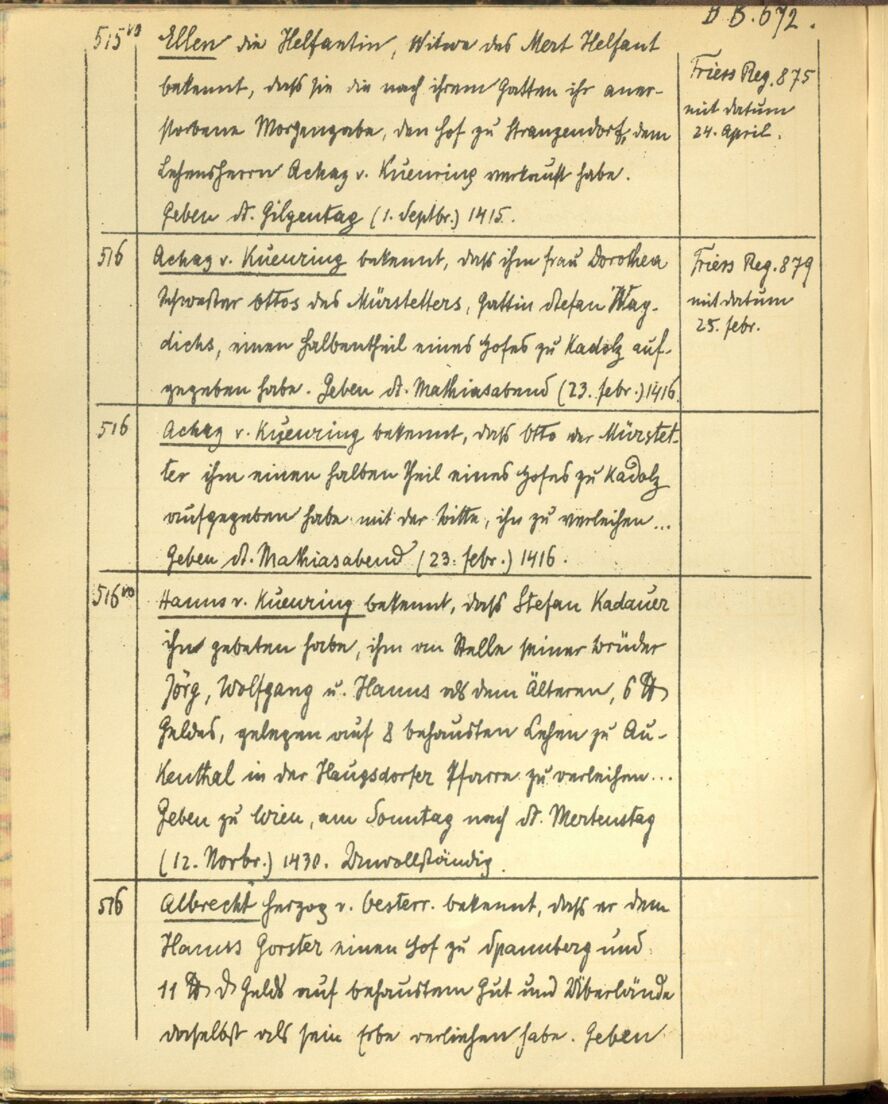 D B. 672.
515 vo Ellen die Helfantin, Witwe des Mert Helfant
bekennt, dass sie die nach ihrem Gatten ihr aner-
storbene Morgengabe, den Hof zu Stranzendorf, dem
Lehensherrn Achaz v. Kuenring verkauft habe.
Geben St. Gilgentag (1. Septbr.) 1415.
Friess Reg. 875
mit datum
24. April.
516 Achaz v. Kuenring bekennt, dass ihm frau Dorothea
Schwester Ottos des Mürstetters, Gattin Stefan Way-
dichs, einen halbentheil eines Hofes zu Kadolz auf-
gegeben habe. Geben St. Mathiasabend (23. febr.) 1416.
Friess Reg. 879
mit datum
25. febr.
516 Achaz v. Kuenring bekennt, dass Otto der Mürstet-
ter ihm einen halben Theil eines Hofes zu Kadolz
aufgegeben habe mit der Bitte, ihn zu verleihen...
Geben St. Mathiasabend (23. febr.) 1416.
516 vo Hanns v. Kuenring bekennt, dass Stefan Kadauer
ihn gebeten habe, ihm an Stelle seiner Brüder
Jörg, Wolfgang u. Hanns als dem Älteren, 6 ℔
Geldes, gelegen auf 8 behausten Lehen zu Au-
kenthal in der Haugsdorfer Pfarre zu verleihen...
Geben zu Wien, am Sonntag nach St. Mertenstag
(12. Novbr.) 1430. Unvollständig.
516 Albrecht herzog v. Oesterr. bekennt, dass er dem
Hanns Gorster einen Hof zu Spannberg und
11 ℔ ₰ Gelds auf behaustem Gut und Überlände
daselbst als sein Erbe verliehen habe. Geben